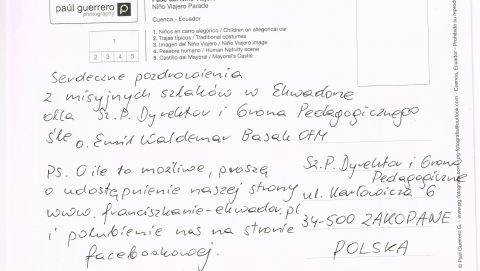 paúl guerrero
photography
Niño Viajero Parade
Cuenca - Ecuador
1. Niños en carro alegórico / Children on allegorical car
2. Trajes típicos / Traditional costumes
3. Imagen del Niño Viajero / Niño Viajero image
4. Pesebre humano / Human Nativity scene
5. Castillo del Mayoral / Mayoral's Castle
1
2 3 4 5
Serdeczne pozdrowienia
z misyjnych szlaków w Ekwadorze
dla Sz. P. Dyrektor i Grona Pedagogicznego
śle o. Emil Waldemar Basak OFM
Ps. O ile to możliwe, proszę
o udostępnienie naszej strony
www.franciszkanie-ekwador.pl
i polubienie nas na stronie
facebookowej.
Sz. P. Dyrektor i Grono
Pedagogiczne
ul. Karłowicza 6
34-500 ZAKOPANE
POLSKA
© Paúl Guerrero G.
Cuenca, Ecuador